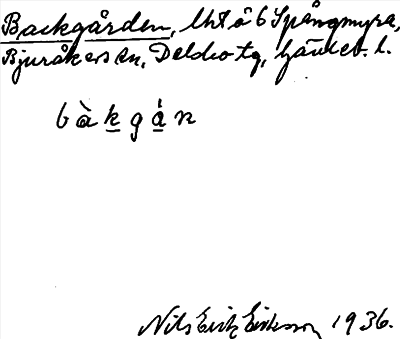 Backgården, lht å 6 Spångmyra,
Bjuråkers sn, Delsbo tg, Gävleb. l.
bàkgán
Nils Erik Eriksson 1936.